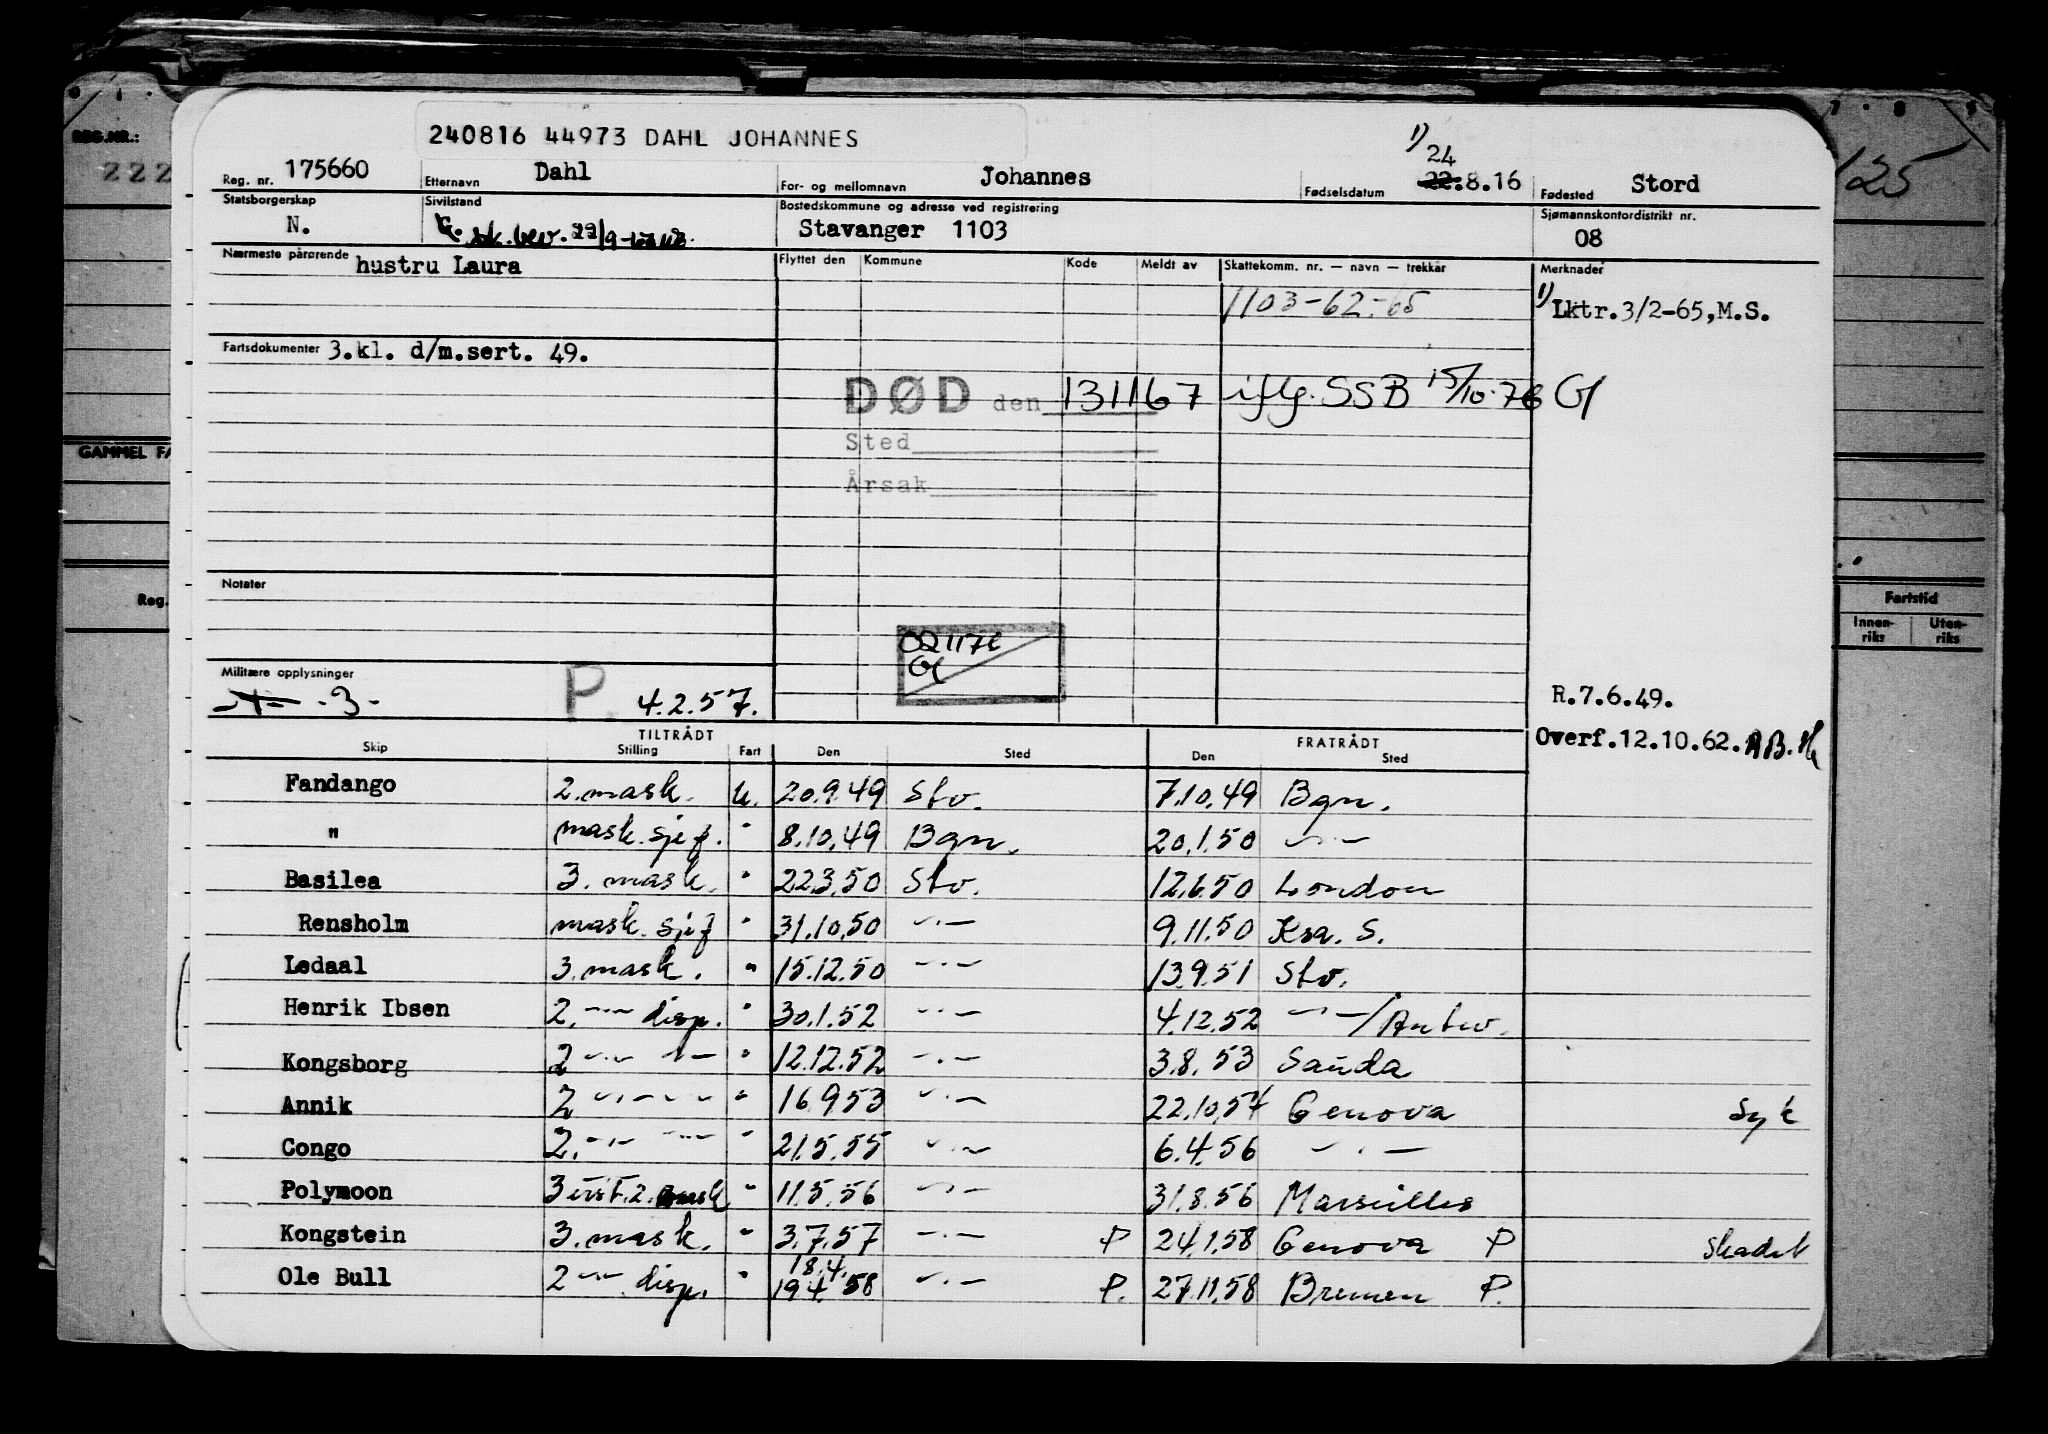 240816 44973 DAHL JOHANNES
REG.NR.:
222
125
Reg. nr. 175660 Etternavn Dahl For- og mellomnavn Johannes Fødselsdatum 1) 24 22.8.16 Fødested Stord
Statsborgerskap N. Sivilstand Bostedskommune og adresse ved registrering Stavanger 1103 Sjømannskontordistrikt nr. 08
Nærmeste pårørende hustru Laura Flyttet den Kommune Kode Meldt av Skattekomm. nr. — navn — trekkår Merknader
1103-62-65
1) Lktr.3/2-65,M.S.
Fartsdokumenter 3.kl. d/m.sert. 49.
DØD den 131167 iflg. SSB 15/10-76 Gf
Sted
Årsak
GAMMEL FA
Notater
Reg.
Fartstid
Innen-riks Uten-riks
Militære opplysninger
-3- P. 4.2.57.
R.7.6.49.
Overf.12.10.62.
TILTRÅDT FRATRÅDT
Skip Stilling Fart Den Sted Den Sted
Fandango 2.mask. u. 20.9.49 Stv. 7.10.49 Bgn.
" mask.sjef. " 8.10.49 Bgn. 20.1.50 -"-
Basilea 3. mask. " 22.3.50 Stv. 12.6.50 London
Rensholm mask.sjef " 31.10.50 -"- 9.11.50 Krs. S.
Ledaal 3.mask. " 15.12.50 -"- 13.9.51 Stv.
Henrik Ibsen 2. -"- disp. " 30.1.52 -"- 4.12.52 -"-/Antw.
Kongsborg 2 -"- -"- " 12.12.52 -"- 3.8.53 Sauda
Annik 2 -"- -"- " 16.9.53 -"- 22.10.54 Genova Syk
Congo 2. -"- -"- " 21.5.55 -"- 6.4.56 -"-
Polymoon 3 2. mask " 11.5.56 -"- 31.8.56 Marseilles
Kongstein 3. mask. " 3.7.57 -"- P 24.1.58 Genova P skadet
Ole Bull 2 -"- disp. " 18.4. 19.4.58 -"- P. 27.11.58 Bremen P.